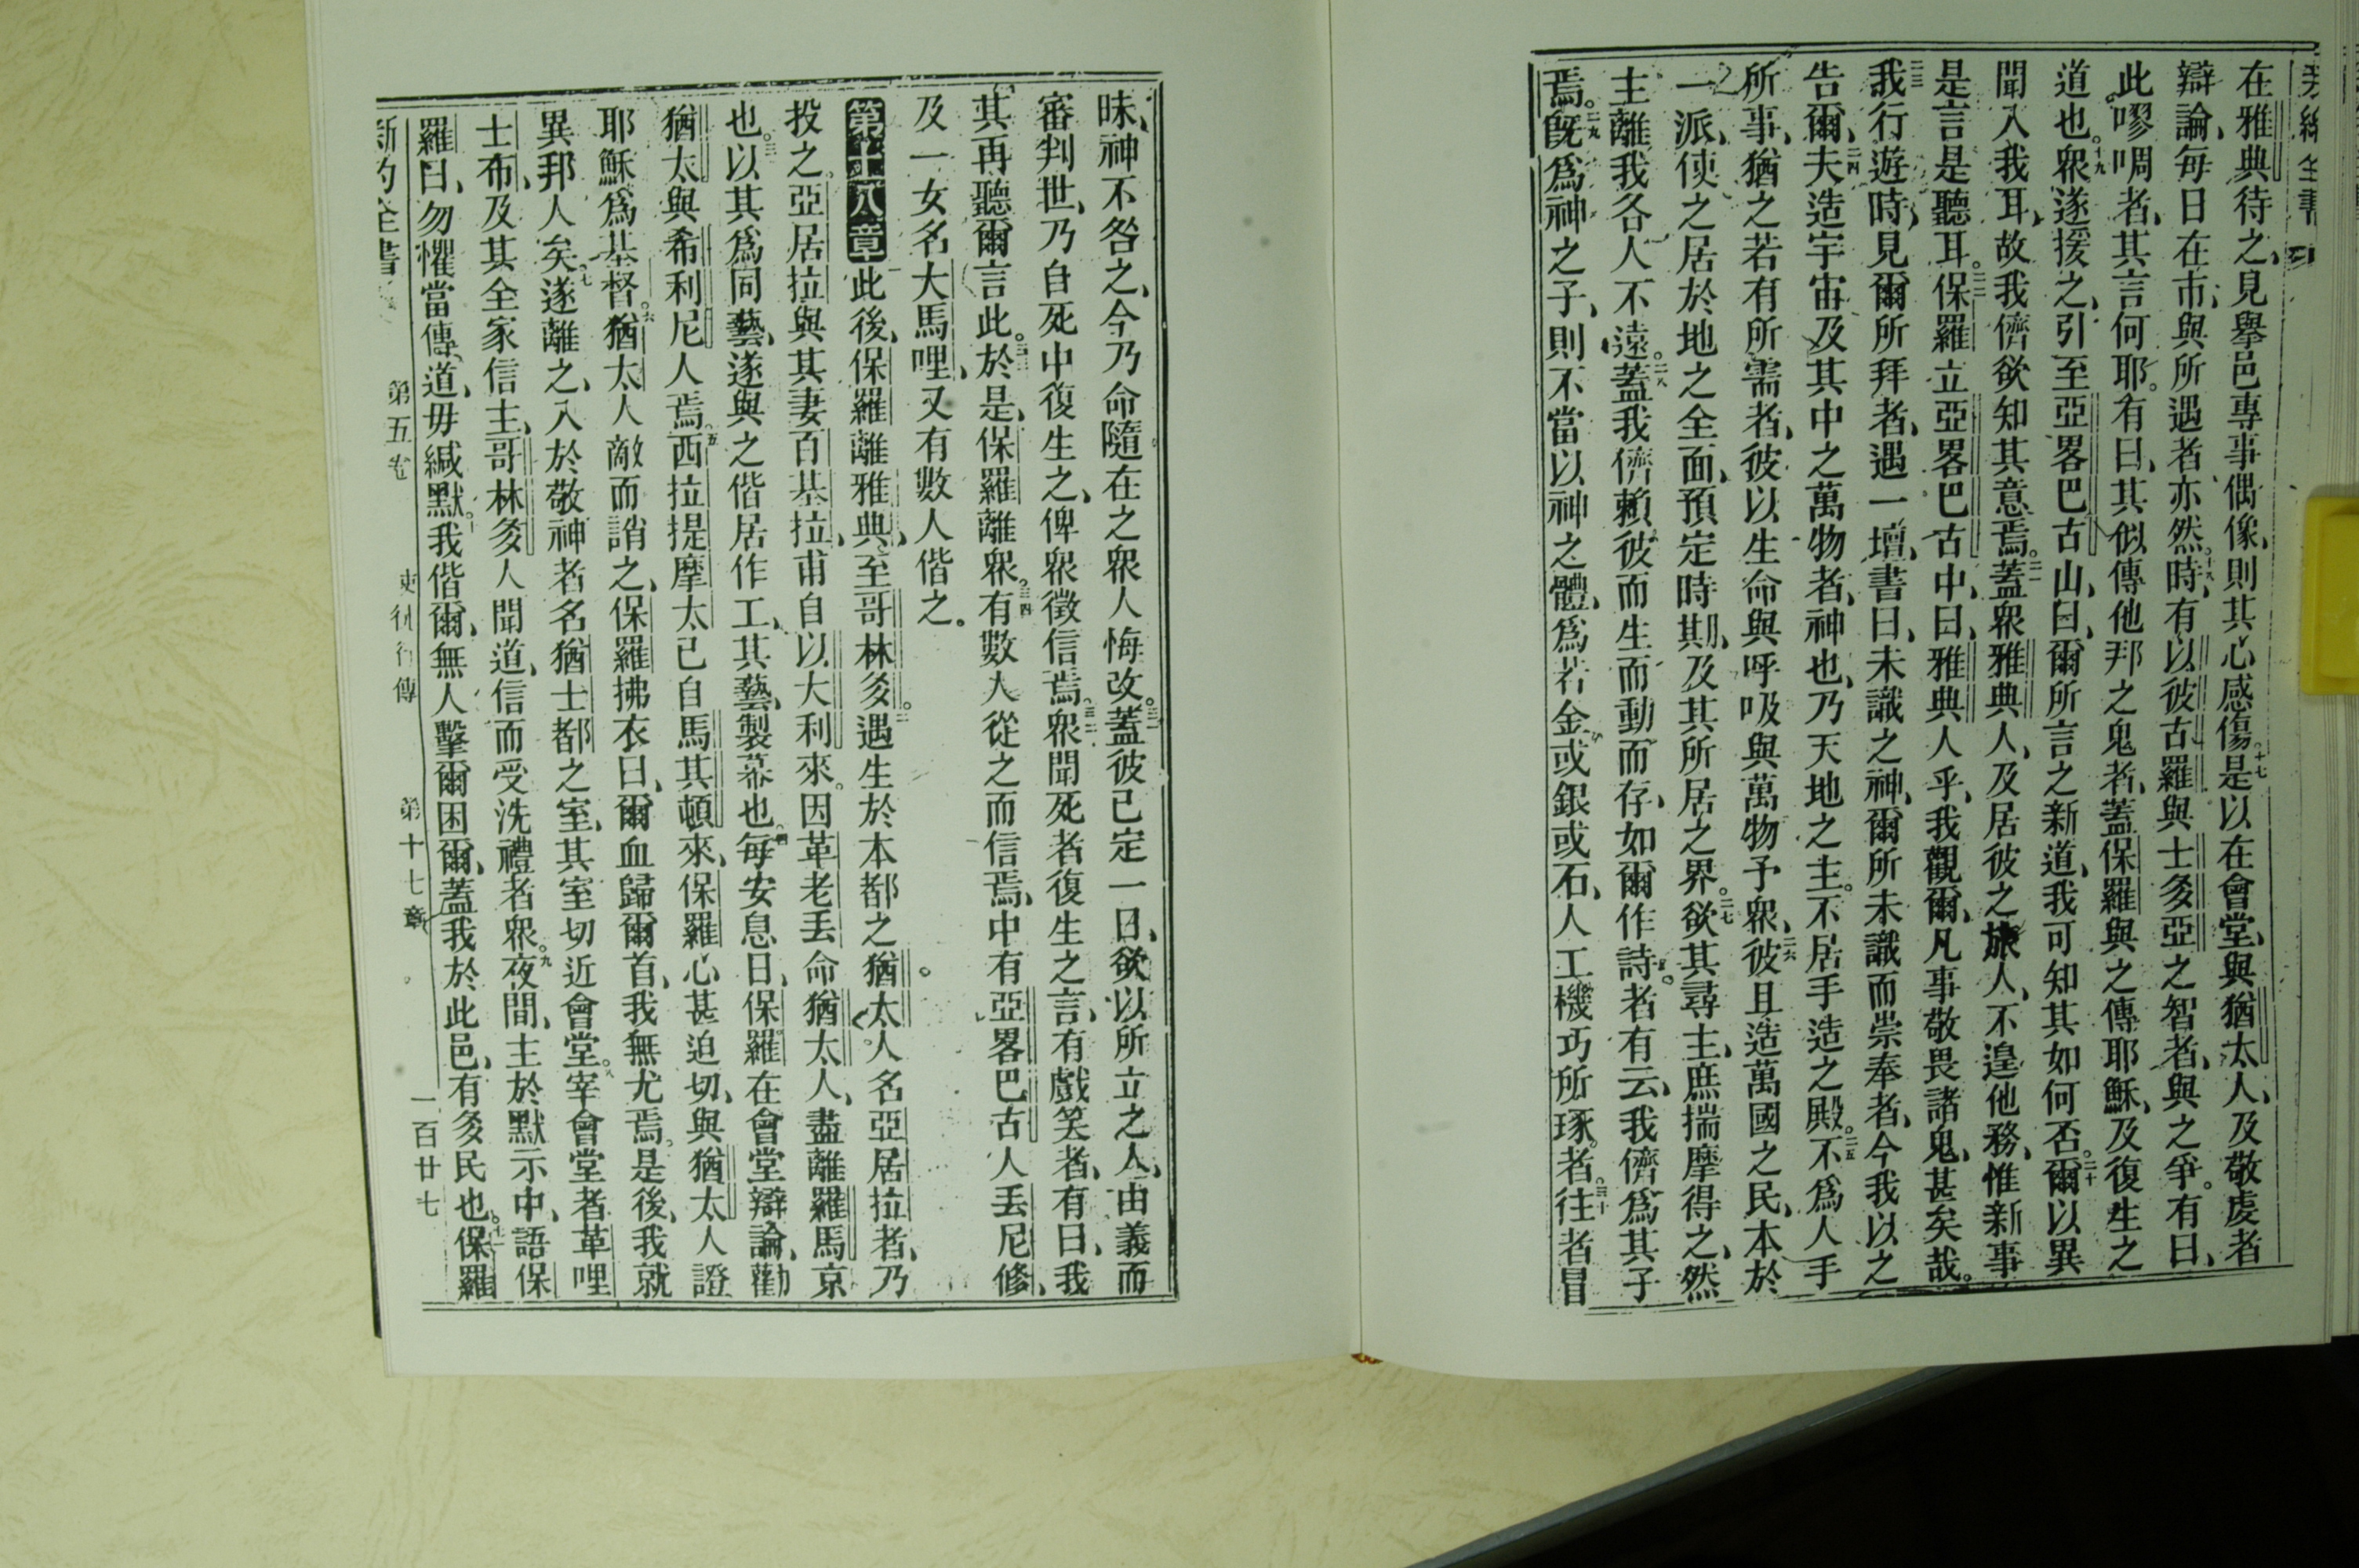 在雅典待之、見舉邑專事偶像、則其心感傷。十七是以在會堂、與猶太人、及敬虔者
辯論、每日在市、與所遇者亦然。十八時、有以彼古羅與士多亞之智者、與之爭。有曰、
此嘐啁者、其言何耶。有曰、其似傳他邦之鬼者、蓋保羅與之傳耶穌、及復生之
道也。十九衆遂援之、引至亞畧巴古山、曰、爾所言之新道、我可知其如何否。二十爾以異
聞入我耳、故我儕欲知其意焉。二一蓋衆雅典人、及居彼之旅人、不遑他務、惟新事
是言是聽耳。二二保羅立亞畧巴古中、曰、雅典人乎、我觀爾、凡事敬畏諸鬼、甚矣哉。
二三我行遊時、見爾所拜者、遇一壇、書曰、未識之神、爾所未識而崇奉者、今我以之
告爾、二四夫造宇宙及其中之萬物者、神也、乃天地之主。不居手造之殿。二五不爲人手
所事、猶之若有所需者、彼以生命與呼吸與萬物予衆、二六彼且造萬國之民、本於
一派、使之居於地之全面、預定時期、及其所居之界。二七欲其尋主、庶揣摩得之、然
主離我各人不遠。二八蓋我儕賴彼而生而動而存、如爾作詩者有云、我儕爲其子
焉。二九旣爲神之子、則不當以神之體、爲若金或銀或石、人工機巧所琢者。三十往者冒
昧、神不咎之、今乃命隨在之衆人悔改。三一蓋彼已定一日、欲以所立之人、由義而
審判世、乃自死中復生之、俾衆徵信焉。三二衆聞死者復生之言、有戲笑者、有曰、我
其再聽爾言此。三三於是、保羅離衆。三四有數人從之而信焉、中有亞畧巴古人丢尼修、
及一女名大馬哩、又有數人偕之。
第十八章此後、保羅離雅典、至哥林多。二遇生於本都之猶太人名亞居拉者、乃
投之。亞居拉與其妻百基拉、甫自以大利來。因革老丢命猶太人、盡離羅馬京
也。三以其爲同藝、遂與之偕居作工、其藝、製幕也。四每安息日、保羅在會堂辯論、勸
猶太與希利尼人焉。五西拉提摩太已自馬其頓來、保羅心甚迫切、與猶太人證
耶穌爲基督。六猶太人敵而誚之、保羅拂衣曰、爾血歸爾首、我無尤焉。是後、我就
異邦人矣。七遂離之、入於敬神者名猶士都之室、其室切近會堂。八宰會堂者革哩
士布、及其全家信主、哥林多人聞道、信而受洗禮者衆。九夜間、主於默示中、語保
羅曰、勿懼、當傳道、毋緘默。十我偕爾、無人擊爾困爾、蓋我於此邑、有多民也。十一保羅
新約全書 第五卷 使徒行傳 第十七章 一百廿七